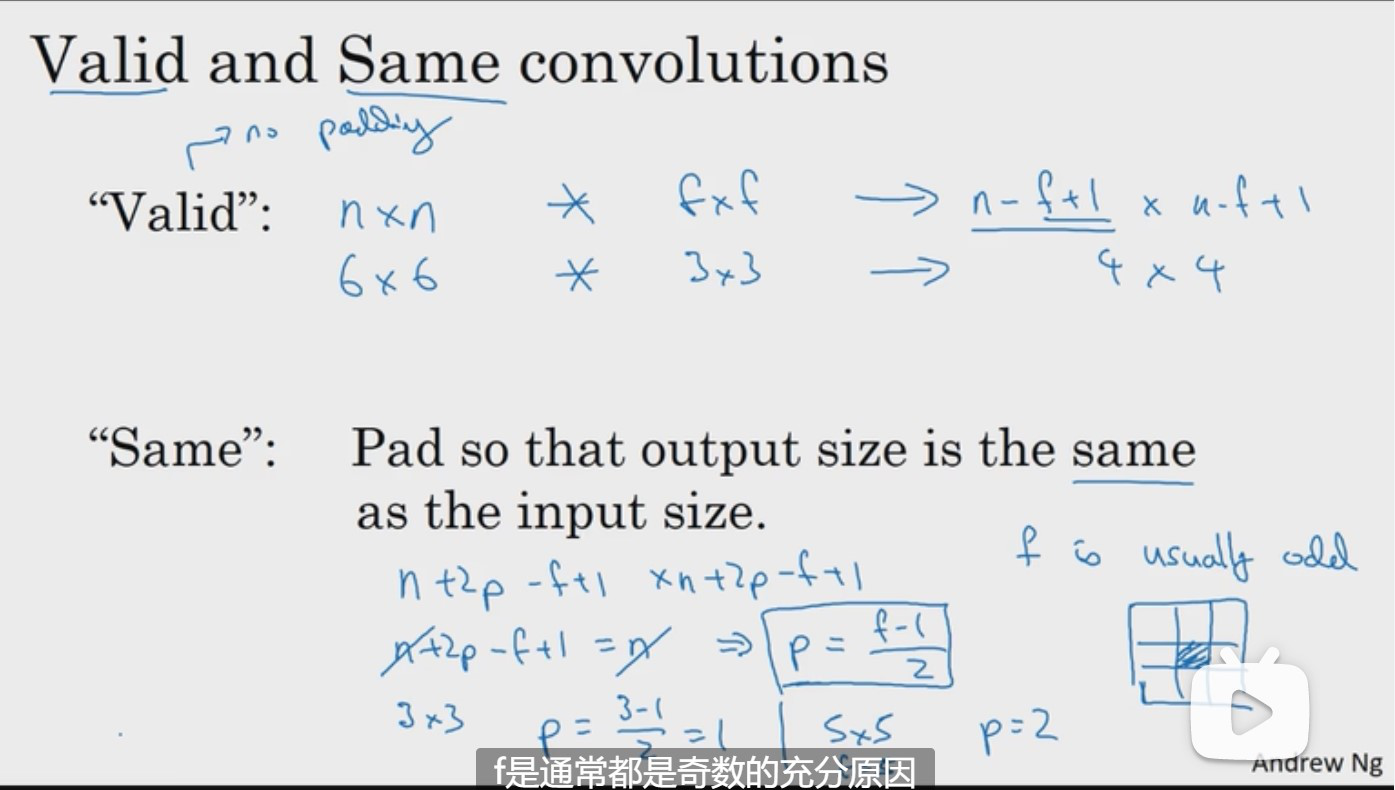 Valid and Same convolutions
→ no padding
“Valid”: n × n * f × f → n - f + 1 × n - f + 1
6 × 6 * 3 × 3 → 4 × 4
“Same”: Pad so that output size is the same
as the input size.
f is usually odd
n + 2p - f + 1 × n + 2p - f + 1
n + 2p - f + 1 = n ⇒ p = (f-1)/2
3 × 3 p = (3-1)/2 = 1 | 5 × 5 p = 2
Andrew Ng
f是通常都是奇数的充分原因